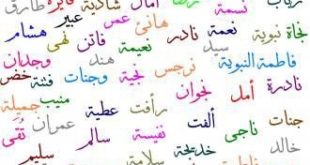 رباب نسمة رضا آمال شادية فايزة طارق
نجاة نبوية سيد هانئ عمر عبير
نعمة نادر نعيمة فاتن نهى هشام
فاطمة النبوية نرجس هند وجدان
نجية وجنات فتنة خضر
نادرة أمل نجوان رأفت عطية منيب جميلة
جنات ناجى ألفت نفيسة سالم عمران تقى
خالد خديجة سلامة سليم